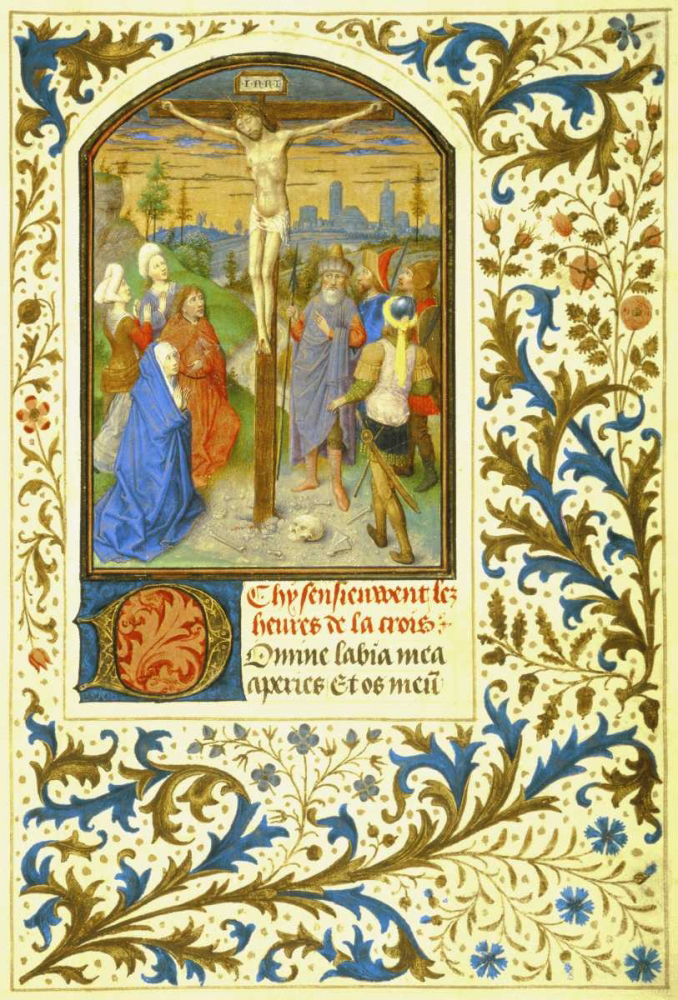 I·NRI
Chy sensieuwent les
heures de la crois
Domine labia mea
aperies Et os meū